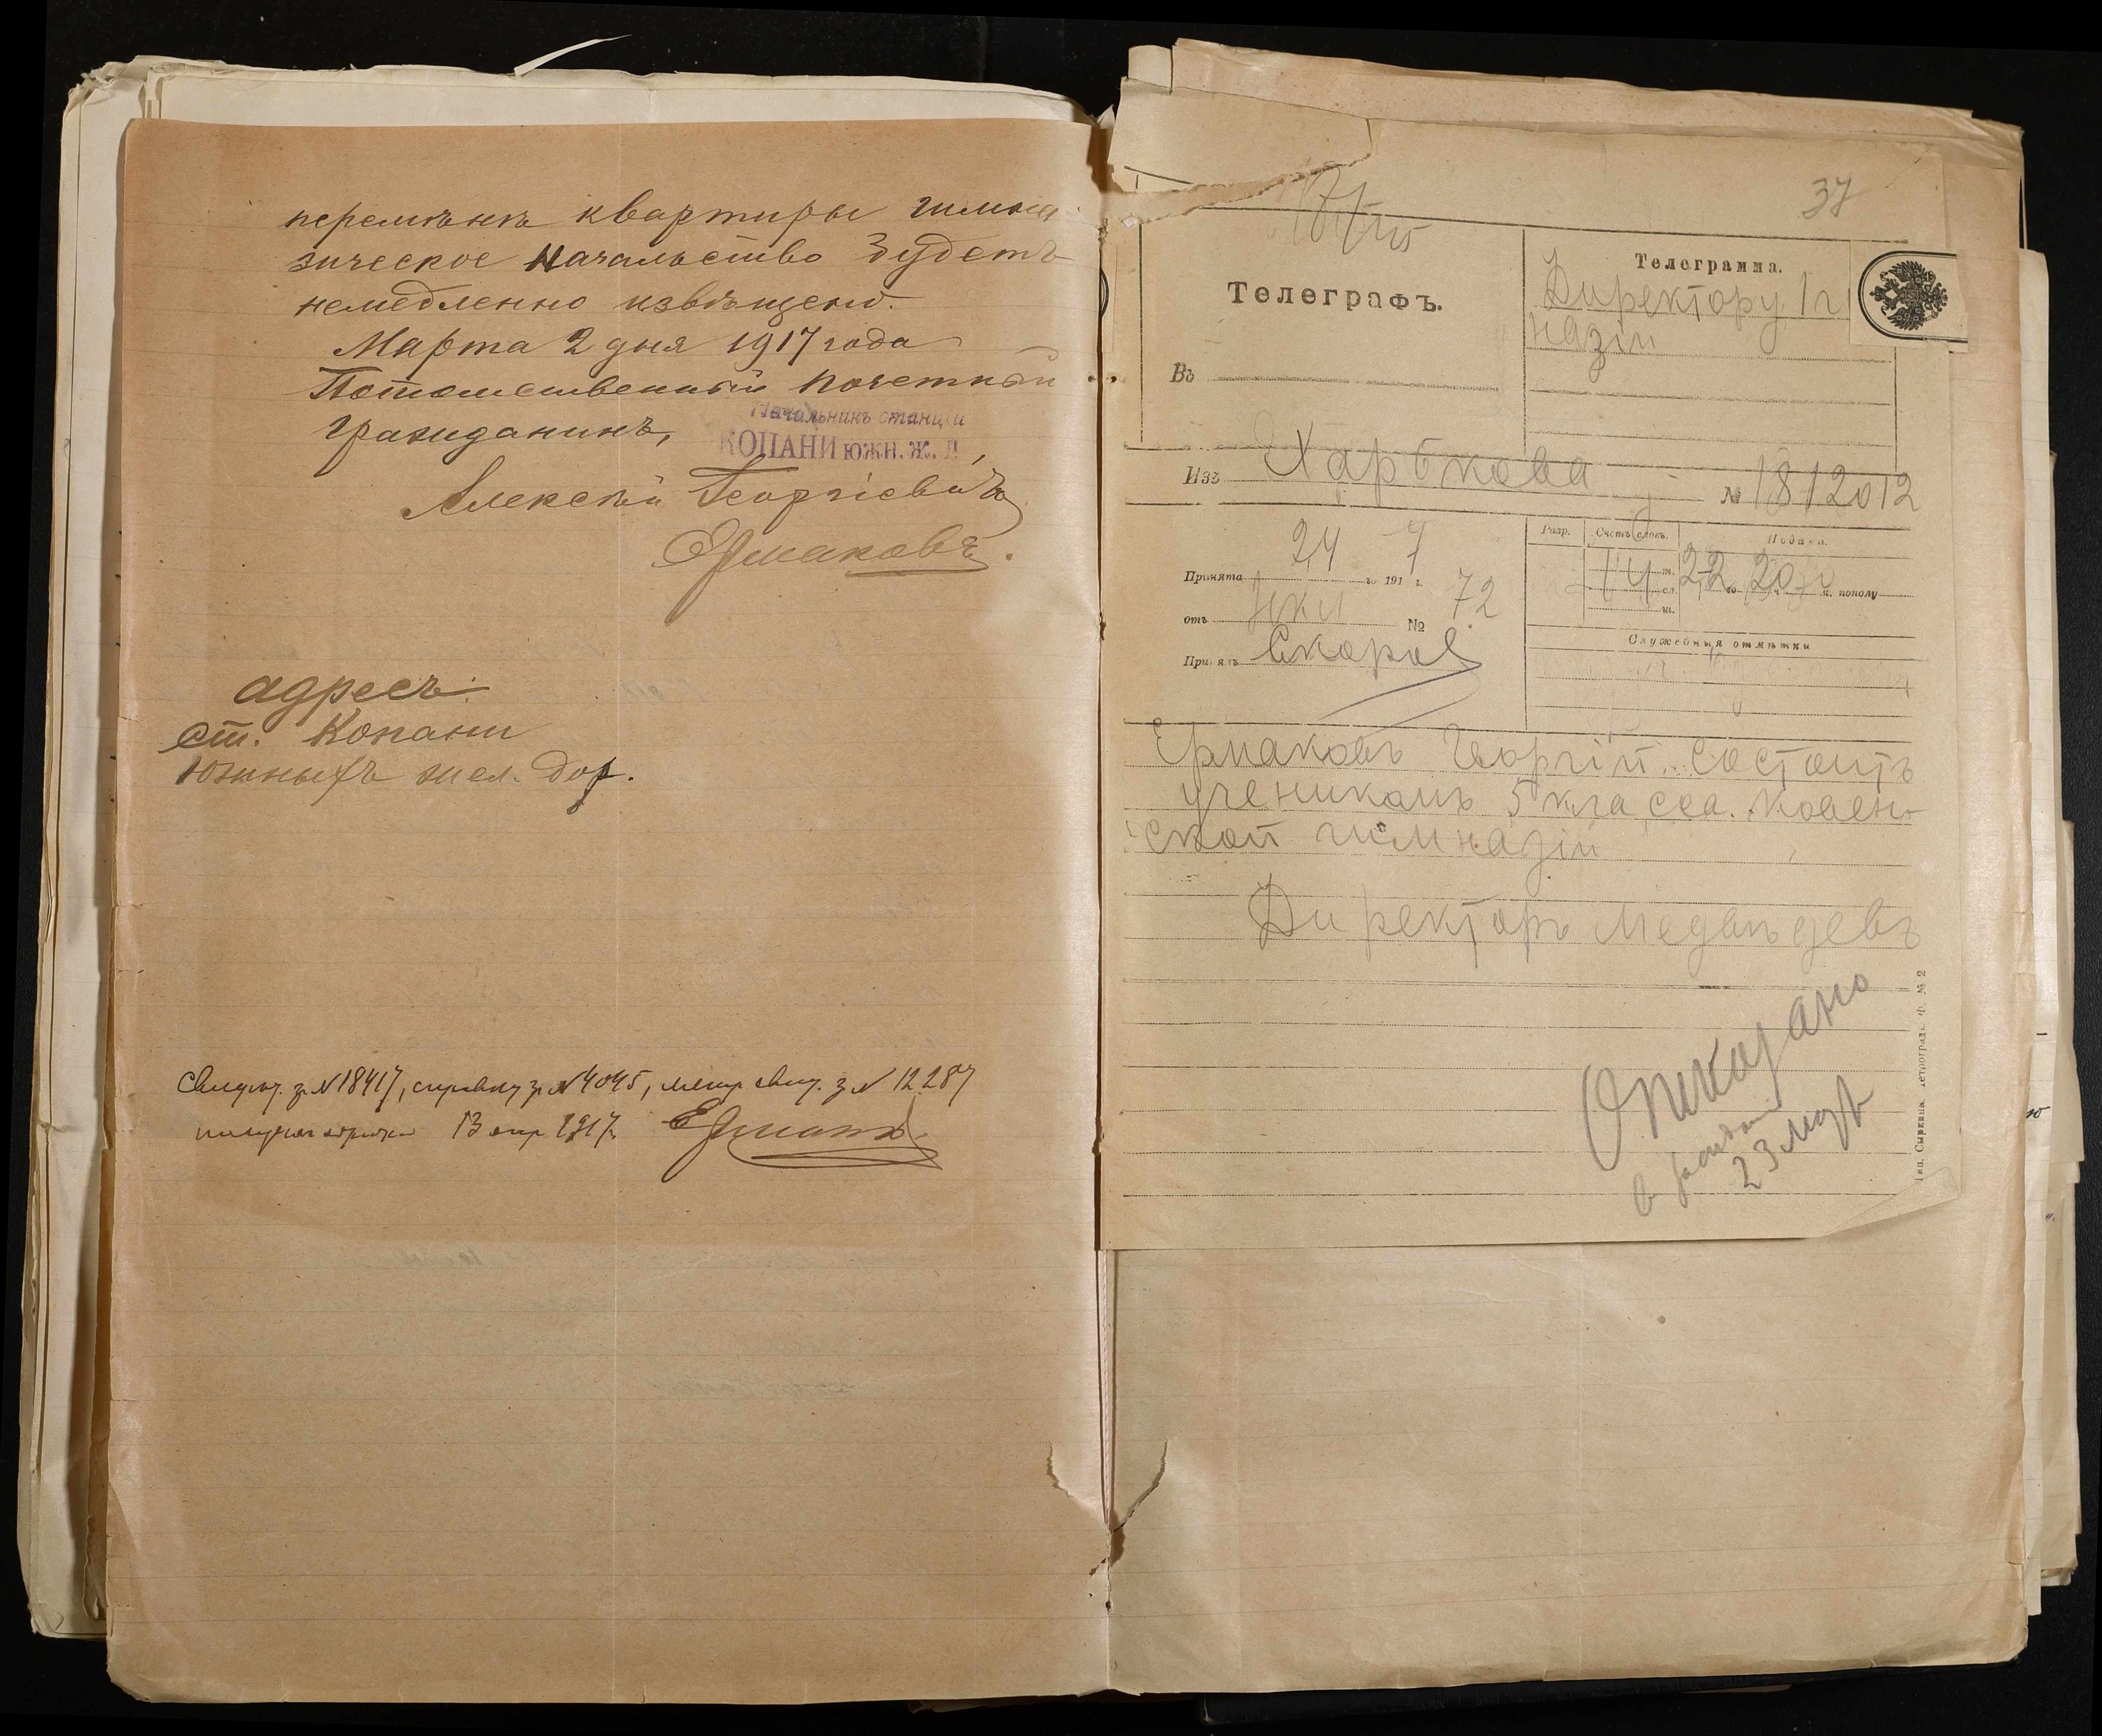 перемѣнѣ квартиры гимна-
зическое Начальство будетъ
немедленно извѣщено.
Марта 2 дня 1917 года
Потомственный почетный
гражданинъ,
Начальникъ станціи
КОПАНИ южн. ж. д.
Алексѣй Георгіевичъ
Ермаковъ.
адресъ:
ст. Копани
Южныхъ жел. дор.
Свидѣт. за № 18417, справку за № 4045, метр. свид. за № 12287
получилъ обратно 13 апр 1917 г. Ермаковъ
37
Телеграфъ.
Въ
Телеграмма.
Директору 1 г
назіи
Изъ Харькова № 181 2012
Принята 24 го 1917 г.
отъ № 72
Принялъ
Разр. Счетъ словъ. Подача.
14 22 го 20 м. пополу
Служебныя отмѣтки
Ермаковъ Георгій состоитъ
ученикомъ 5 класса Ковен-
ской гимназіи
Директоръ Медвѣдевъ
Отказано
23 мар
Тип. Сыркина. Петроградъ. Ф. № 2